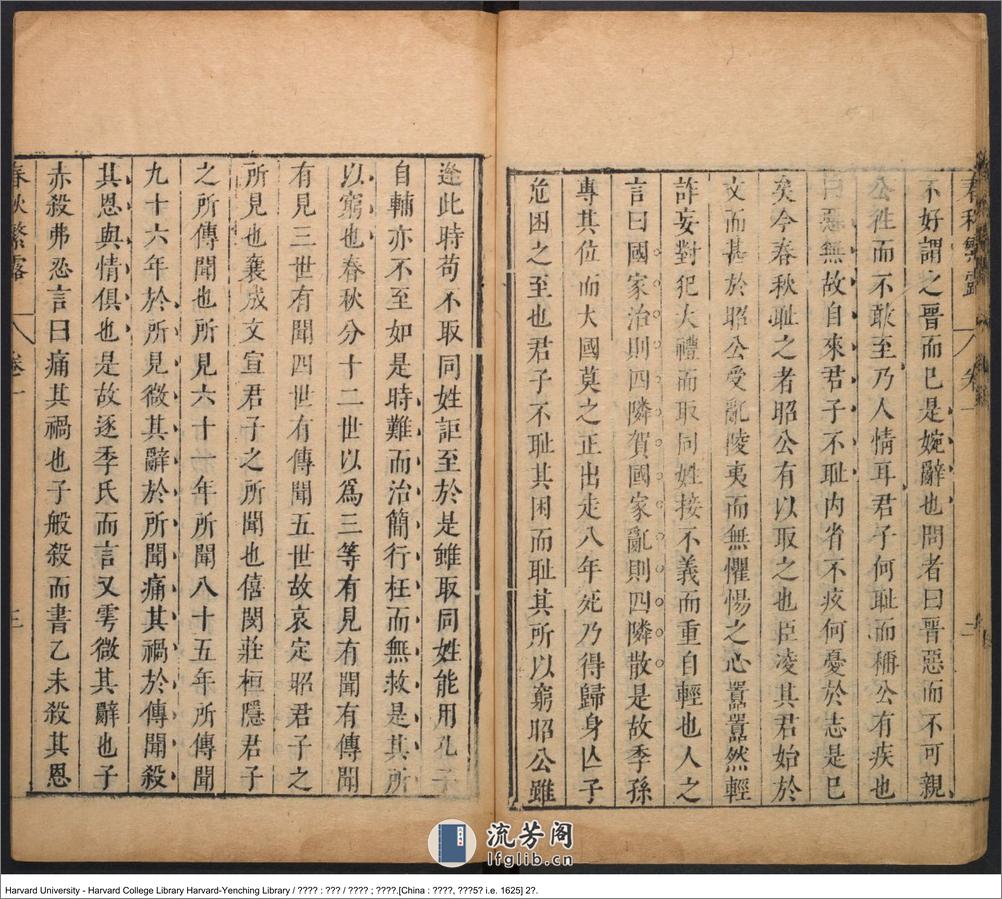 春秋繁露 卷一 二
不好謂之晉而已是婉辭也問者曰晉惡而不可親
公徃而不敢至乃人情耳君子何恥而稱公有疾也
曰惡無故自來君子不恥内省不疚何憂於志是巳
矣今春秋恥之者昭公有以取之也臣凌其君始於
文而甚於昭公受亂陵夷而無懼惕之心囂囂然輕
詐妄對犯大禮而取同姓接不義而重自輕也人之
言曰國家治則四隣賀國家亂則四隣散是故季孫
專其位而大國莫之正出走八年死乃得歸身亾子
危困之至也君子不恥其困而恥其所以窮昭公雖
逢此時苟不取同姓詎至於是雖取同姓能用孔子
自輔亦不至如是時難而治簡行枉而無救是其所
以窮也春秋分十二世以爲三等有見有聞有傳聞
有見三世有聞四世有傳聞五世故哀定昭君子之
所見也襄成文宣君子之所聞也僖閔莊桓隱君子
之所傳聞也所見六十一年所聞八十五年所傳聞
九十六年於所見微其辭於所聞痛其禍於傳聞殺
其恩與情俱也是故逐季氏而言又雩微其辭也子
赤殺弗忍言曰痛其禍也子般殺而書乙未殺其恩
春秋繁露 卷一 三
流芳阁
lfglib.cn
Harvard University - Harvard College Library Harvard-Yenching Library / ???? : ??? / ???? ; ????.[China : ????, ???5? i.e. 1625] 2?.